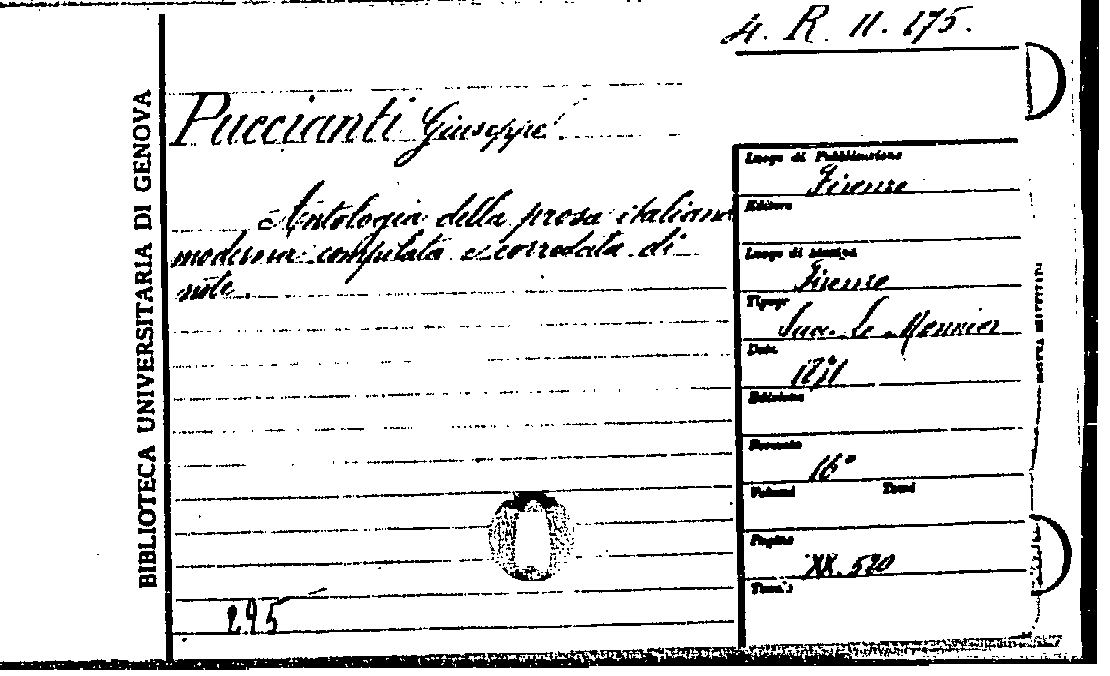 4. R. 11. 175.
BIBLIOTECA UNIVERSITARIA DI GENOVA
Puccianti Giuseppe
Antologia della prosa italiana
moderna compilata e corredata di
note.
295
Luogo di Pubblicazione
Firenze
Editore
Luogo di stampa
Firenze
Tipogr
Suc. Le Monnier
Data
1871
Edizione
Formato
16°
Volumi Tomi
Pagine
XX. 520